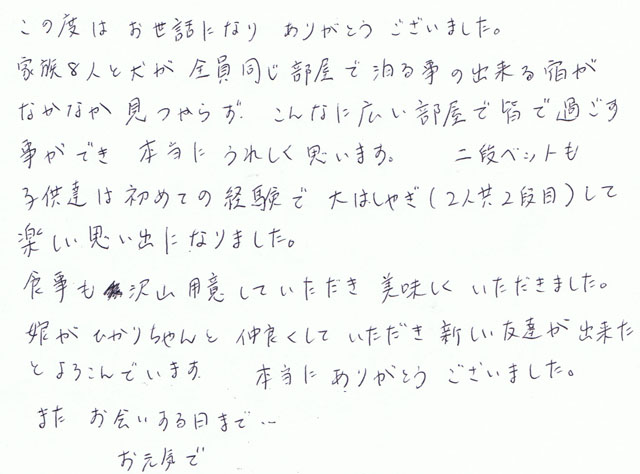 この度は お世話になり ありがとう ございました。
家族8人と犬が 全員同じ部屋で泊る事の出来る宿が
なかなか見つからず こんなに広い部屋で皆で過ごす
事ができ 本当に うれしく思います。 二段ベットも
子供達は初めての経験で 大はしゃぎ(2人共2段目)して
楽しい思い出になりました。
食事も 沢山用意していただき 美味しく いただきました。
娘が ひかりちゃんと 仲良くして いただき 新しい友達が出来た
とよろこんでいます 本当に ありがとう ございました。
また お会いする日まで…
お元気で